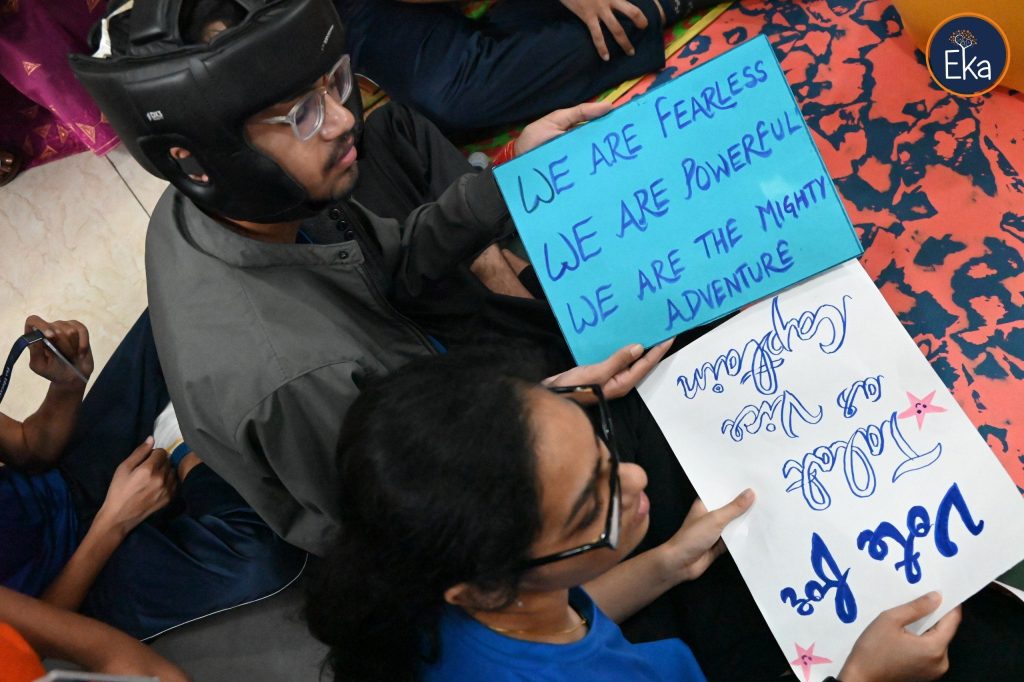 Eka
WE ARE FEARLESS
WE ARE POWERFUL
WE ARE THE MIGHTY
ADVENTURE
Vote for
Talat
as Vice
Captain